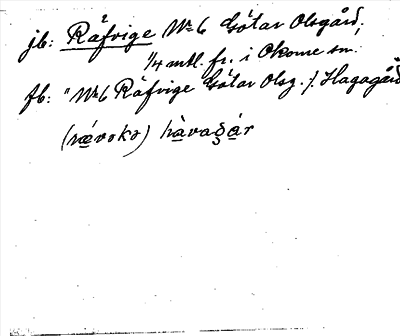 jb: Räfvige No 6 Götar Olsgård,
1/4 mtl. fr. i Okome sn.
fb: "No 6 Räfvige Götar Olsg. /. Hagagård
(rævokə) hàvagár